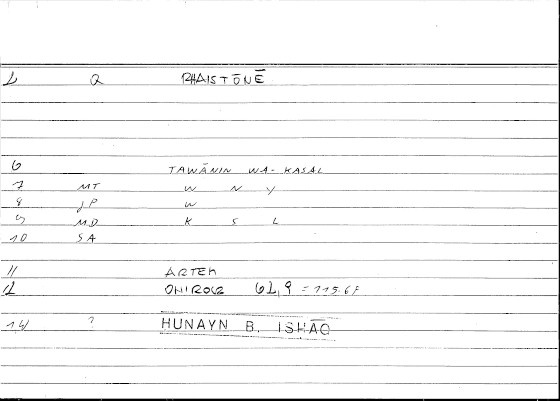 1 Q RHAISTŌNĒ
6 TAWĀNIN WA-KASAL
7 MT W N Y
8 JP W
9 MD K S L
10 SA
11 ARTEM
12 ONIROCR 61,9 = 115.6F
14 ? HUNAYN B. ISHĀQ